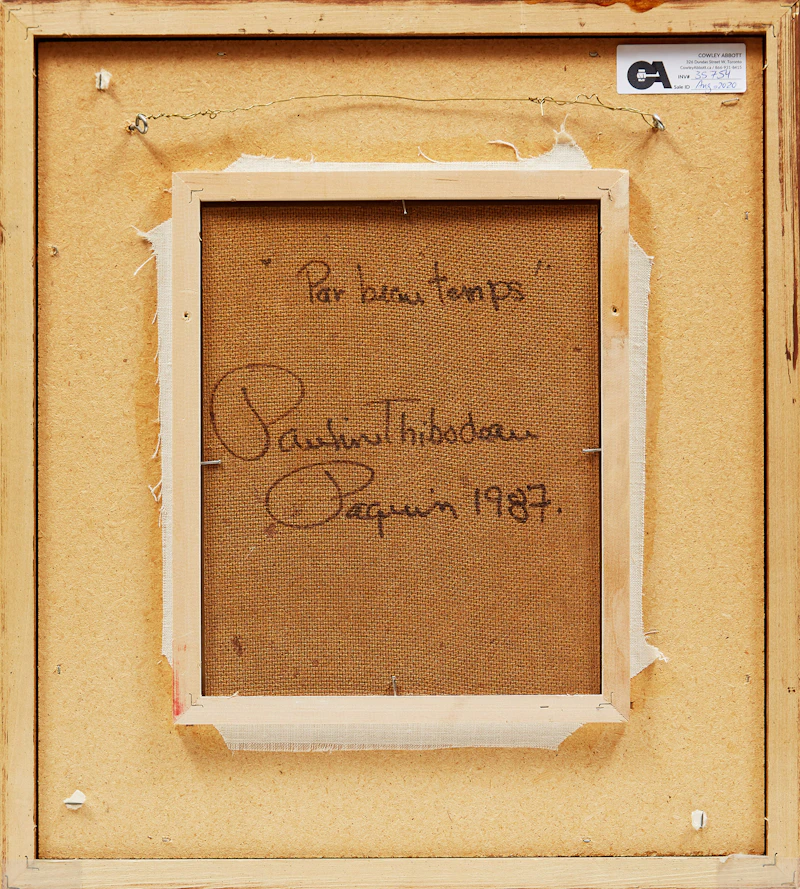 COWLEY ABBOTT
326 Dundas Street W, Toronto
CowleyAbbott.ca / 866 931 8415
CA
INV# 35754
Sale ID Aug 2020
"Par beau temps"
Pauline Thibodeau
Paquin 1987.